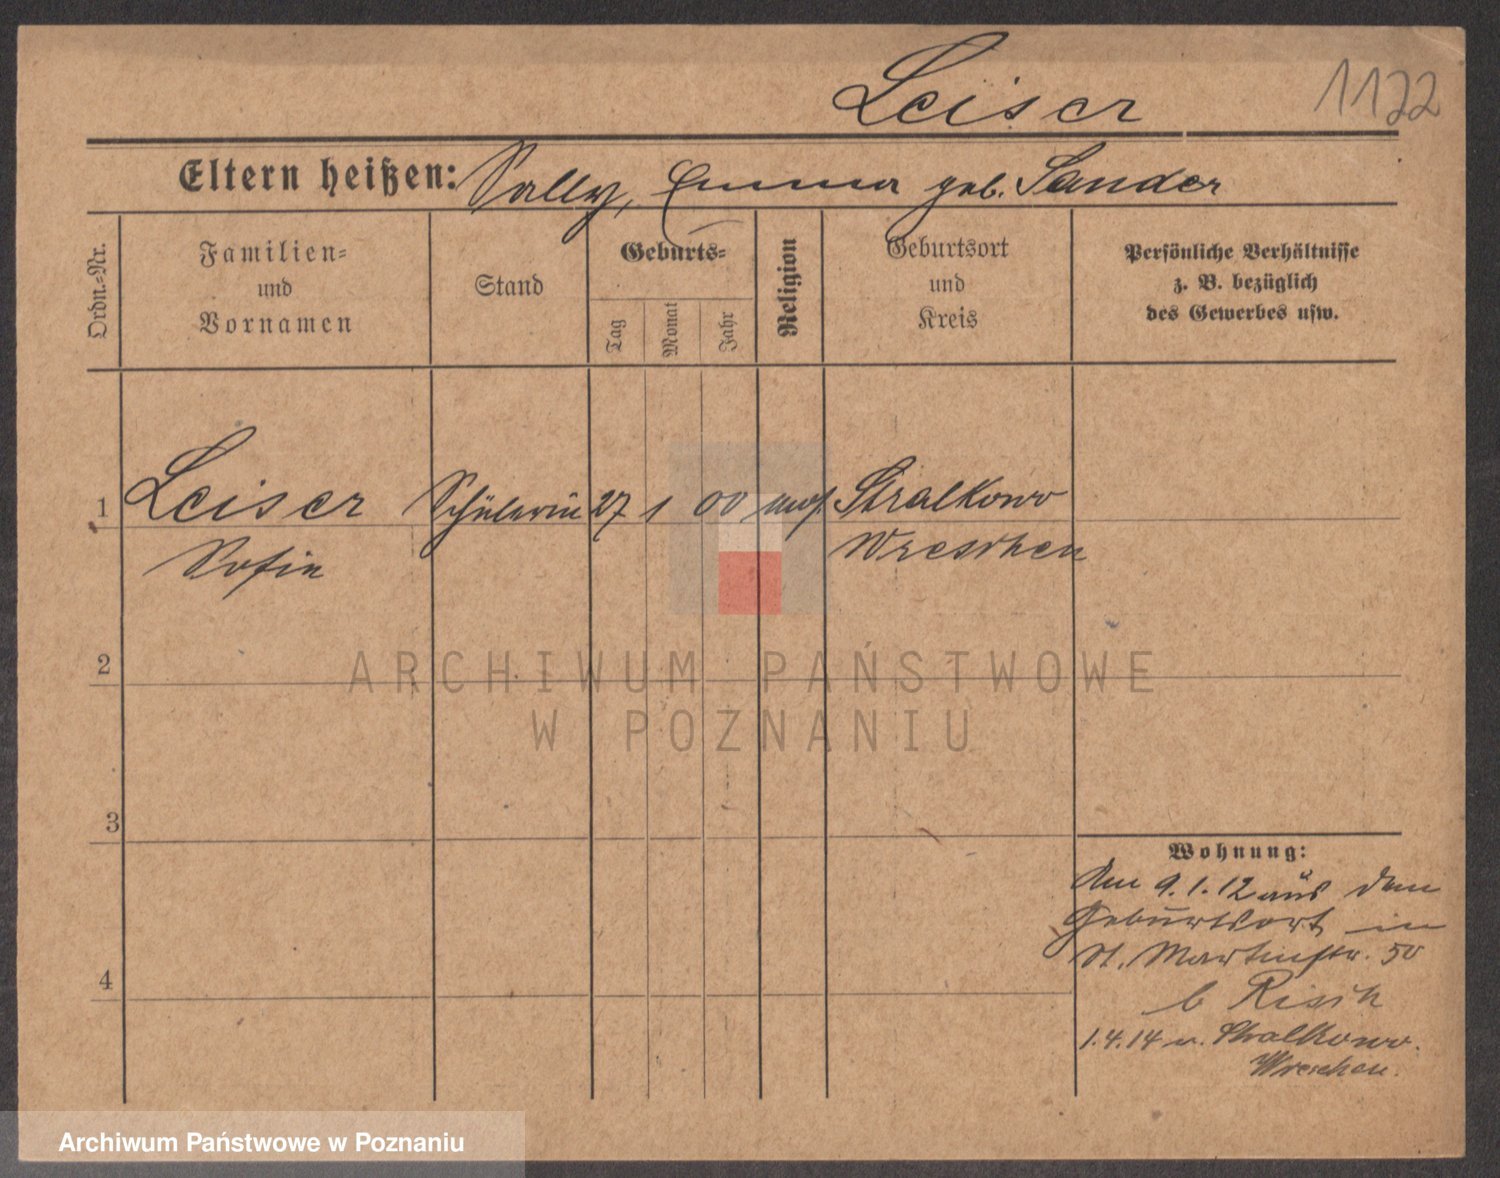 Leiser
1122
Eltern heißen: Sally, Emma geb. Sander
Ordn.-Nr.
Familien-
und
Vornamen
Stand
Geburts-
Tag
Monat
Jahr
Religion
Geburtsort
und
Kreis
Persönliche Verhältnisse
z. B. bezüglich
des Gewerbes usw.
1 Leiser Schülerin 27 1 00 mos. Stralkowo
Sofie Wreschen
2
3
4
Wohnung:
Am 9.1.12 aus dem
Geburtsort in
St. Martinstr. 50
b Risch
1.4.14 n. Stralkowo.
Wreschen.
ARCHIWUM PAŃSTWOWE
W POZNANIU
Archiwum Państwowe w Poznaniu